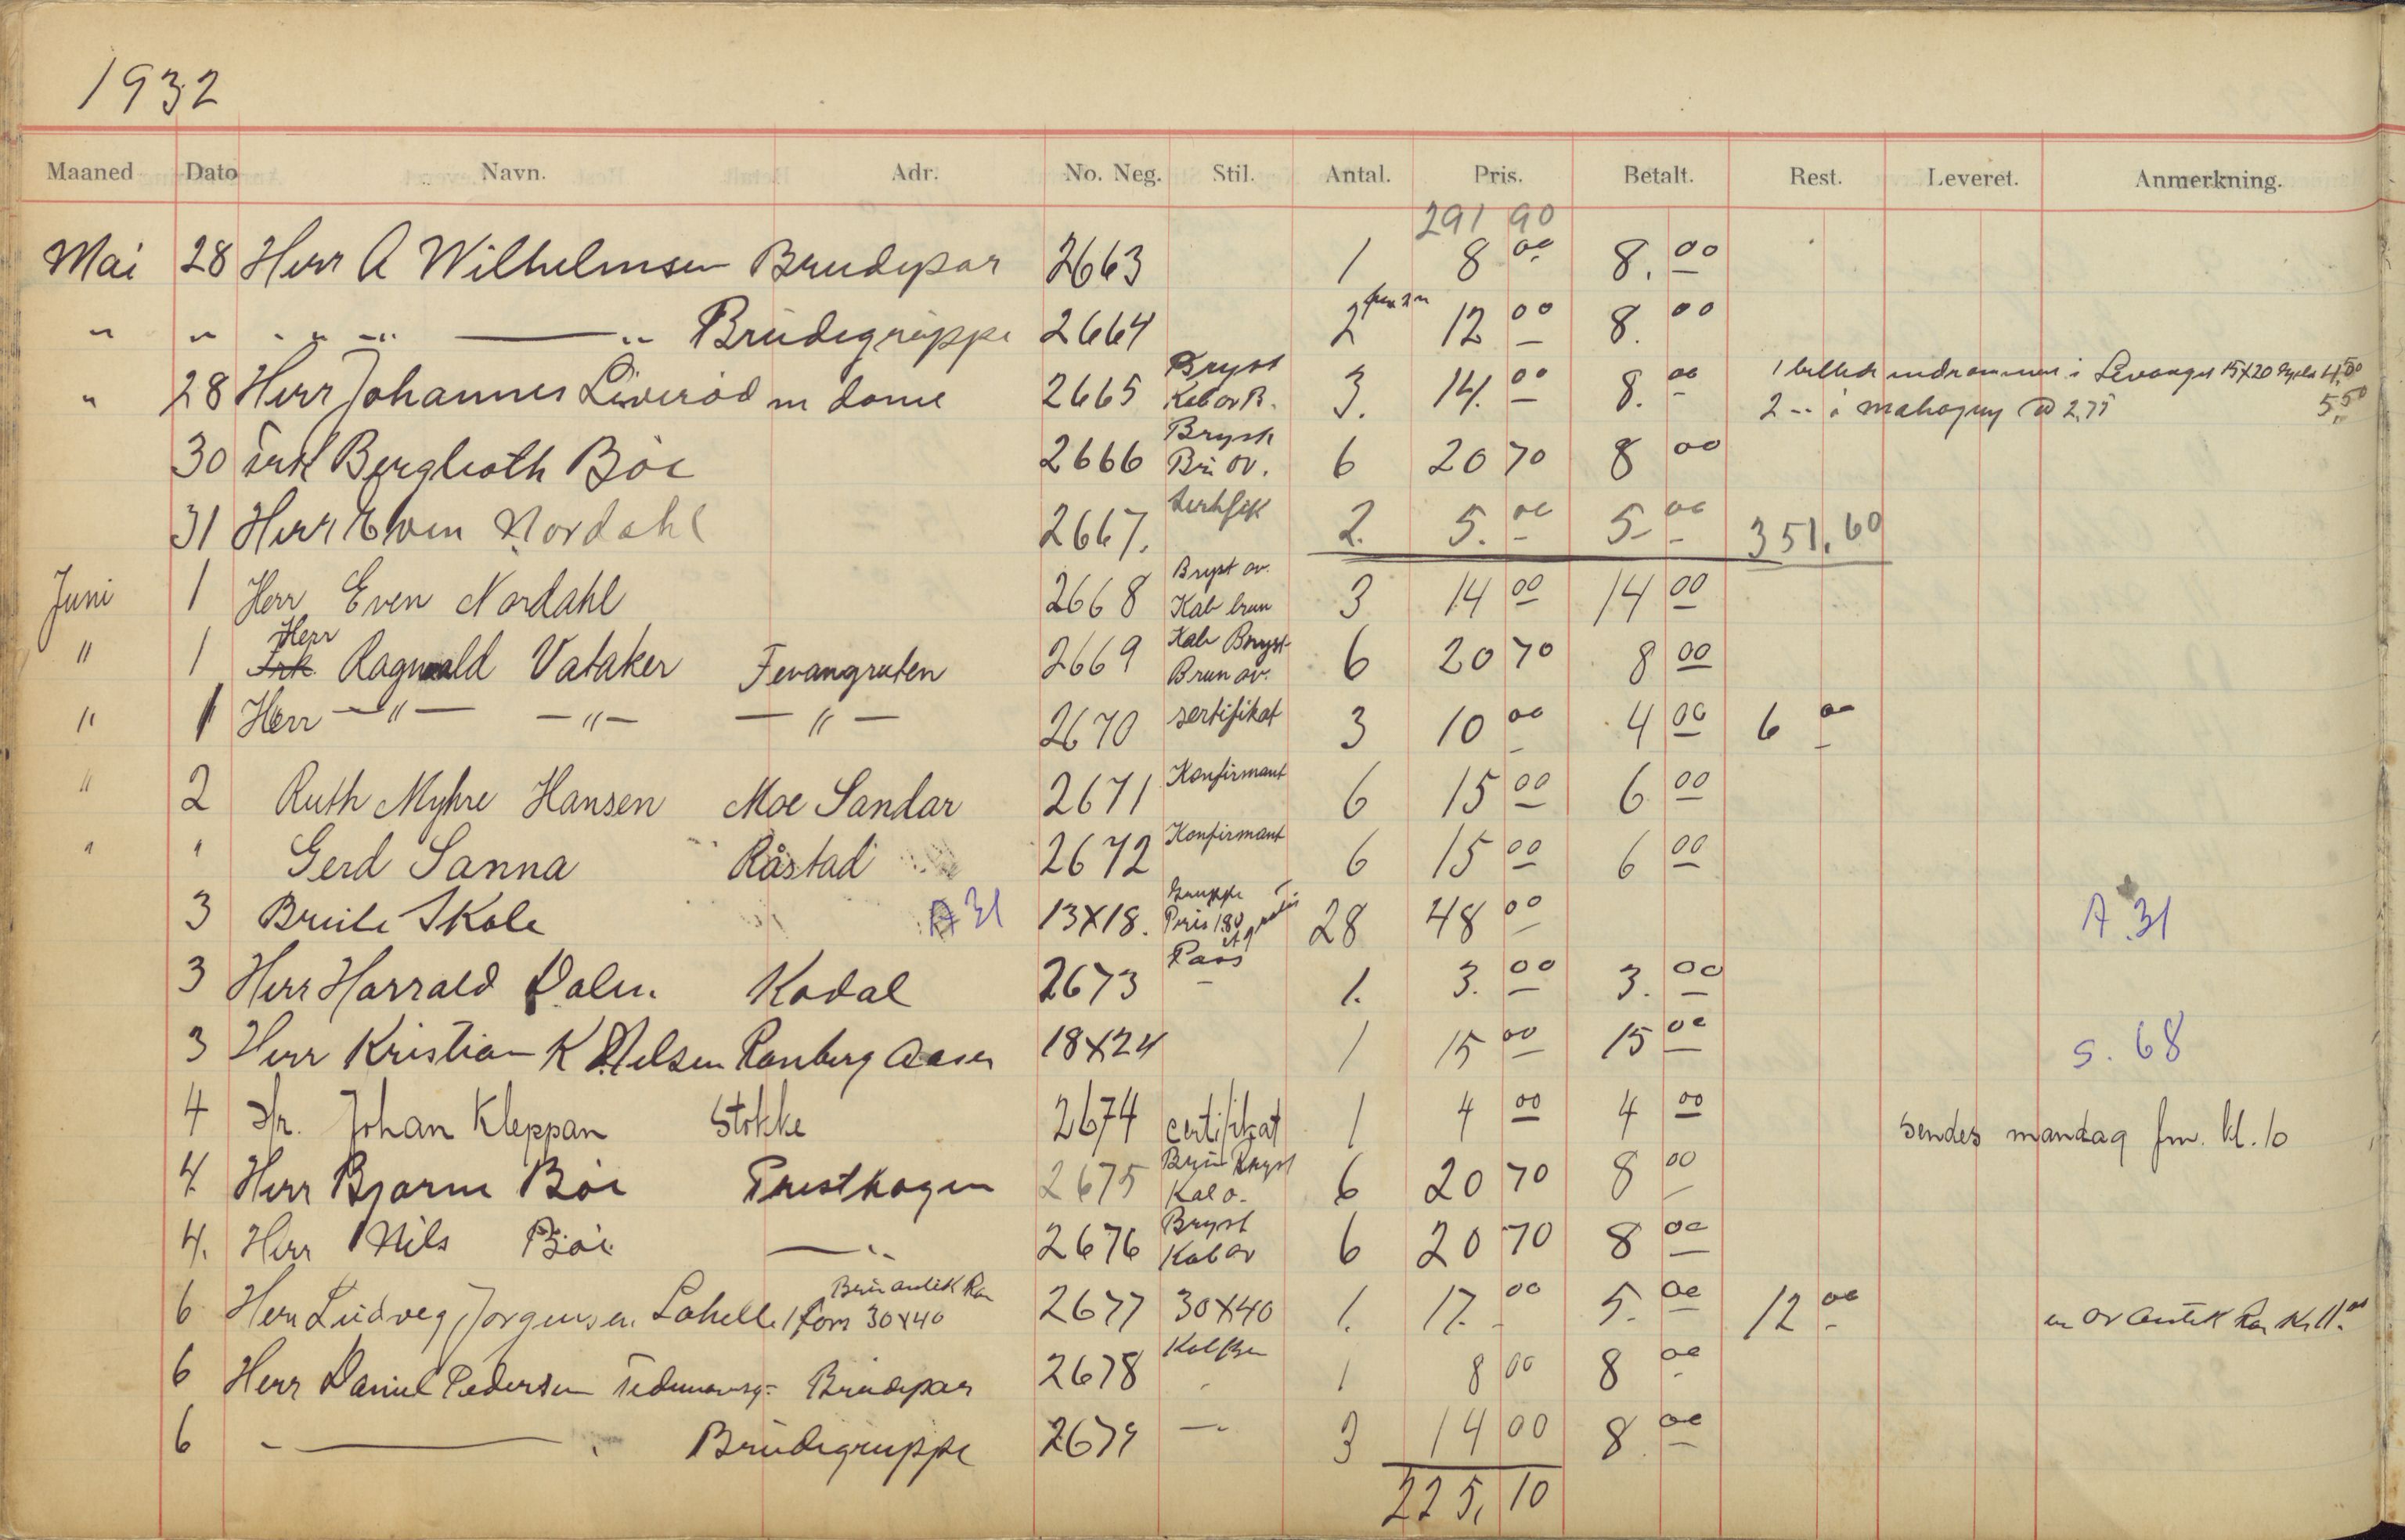 1932
Maaned Dato Navn. Adr. No. Neg. Stil. Antal. Pris. Betalt. Rest. Leveret. Anmerkning.
291 90
Mai 28 Herr A Wilhelmsen Brudepar 2663 1 8 00 8. 00
" " " " " — " Brudegruppe 2664 2 12 00 8. 00
" 28 Herr Johannes Liverød m dame 2665 Bryst Kab ov B. 3. 14. 00 8. 00 1 billede indrammes i Levanger 15X20 4.50
2 -- i mahogny 2,75 5,50
30 Frk Berglioth Böe 2666 Bryst Brü ov. 6 20 70 8 00
31 Herr Even Nordahl 2667. 2. 5. 00 5 00 351.60
Juni 1 Herr Even Nordahl 2668 Bryst ov. Kab brun 3 14 00 14 00
" 1 Frk. Herr Ragnvald Vataker Fevangruten 2669 Kab Bryst Brun ov. 6 20 70 8 00
" 1 Herr — " — — " — — " — 2670 sertifikat 3 10 00 4 00 6 00
" 2 Ruth Myhre Hansen Moe Sandar 2671 Konfirmant 6 15 00 6 00
" " Gerd Sanna Råstad 2672 Konfirmant 6 15 00 6 00
3 Skole A 31 13X18. Gruppe Pris 1.80 28 48 00 A. 31
3 Herr Harrald Dalen Kodal 2673 Pass 1. 3. 00 3. 00
3 Herr Kristian K Nelsen Ranberg Aasen 18X24 1 15 00 15 00 S. 68
4 Hr. Johan Kleppan Stokke 2674 certifikat 1 4 00 4 00 Sendes mandag fm. kl. 10
4. Herr Bjarne Böe Prestkogen 2675 Brün Bryst Kab o. 6 20 70 8 00
4. Herr Nils Böe — " 2676 Bryst Kab ov 6 20 70 8 00
Brün antik Ra
6 Herr Ludveg Jorgensen Lahelle 1 forn 30X40 2677 30X40 1. 17. 00 5. 00 12 00 en ov Antik Ra Kr 11.00
6 Herr Daniel Pedersen Brudepar 2678 1 8 00 8 00
6 - — " Brudegruppe 2679 — " 3 14 00 8 00
225,10